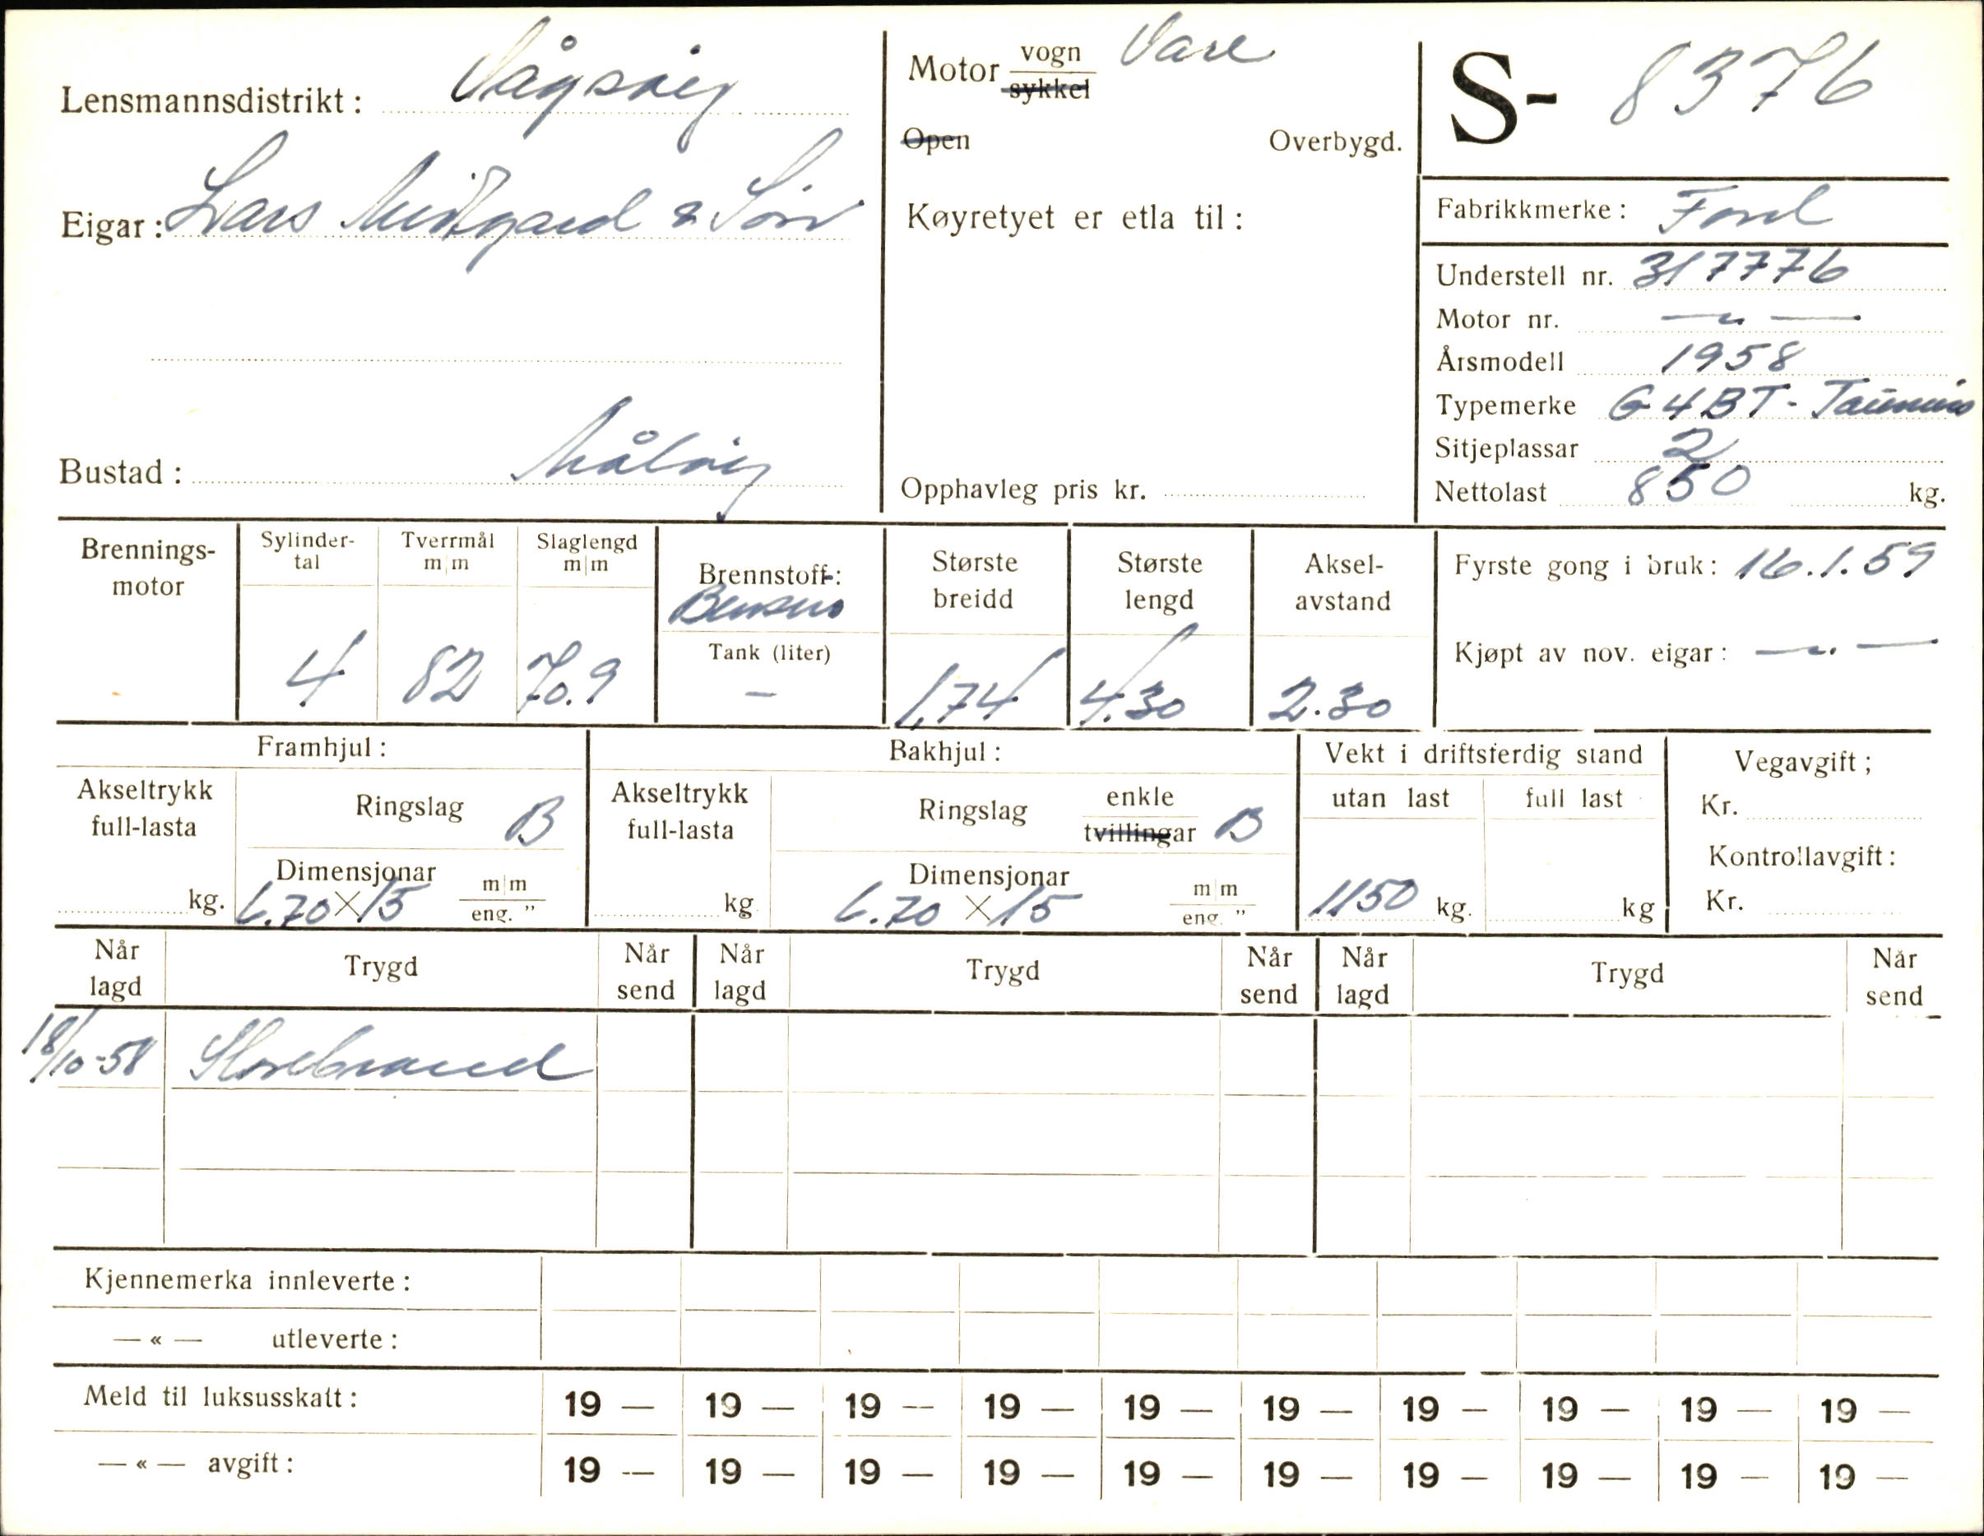 Lensmannsdistrikt: Vågsøy
Eigar: Lars Midtgard & Sønn
Bustad: Måløy
Motor vogn Vare
sykkel
Open Overbygd.
Køyretyet er etla til:
Opphavleg pris kr.
S- 8376
Fabrikkmerke: Ford
Understell nr. 317776
Motor nr. — " —
Årsmodell 1958
Typemerke G4BT - Taunus
Sitjeplassar 2
Nettolast 850 kg.
Brennings-
motor
Sylinder-
tal
4
Tverrmål
m|m
82
Slaglengd
m|m
70.9
Brennstoff:
Bensin
Tank (liter)
—
Største
breidd
1,74
Største
lengd
4.30
Aksel-
avstand
2.30
Fyrste gong i bruk: 16.1.59
Kjøpt av nov. eigar: — " —
Framhjul:
Akseltrykk
full-lasta
kg.
Ringslag B
Dimensjonar
6.70 × 15 m|m
eng. "
Bakhjul:
Akseltrykk
full-lasta
kg
Ringslag enkle
tvillingar B
Dimensjonar
6.70 × 15 m|m
eng. "
Vekt i driftsferdig stand
utan last full last
1150 kg. kg
Vegavgift;
Kr.
Kontrollavgift:
Kr.
Når
lagd Trygd Når
send Når
lagd Trygd Når
send Når
lagd Trygd Når
send
18/10-58 Storebrand
Kjennemerka innleverte:
— « — utleverte:
Meld til luksusskatt: 19 — 19 — 19 — 19 — 19 — 19 — 19 — 19 — 19 — 19 —
— « — avgift: 19 — 19 — 19 — 19 — 19 — 19 — 19 — 19 — 19 — 19 —